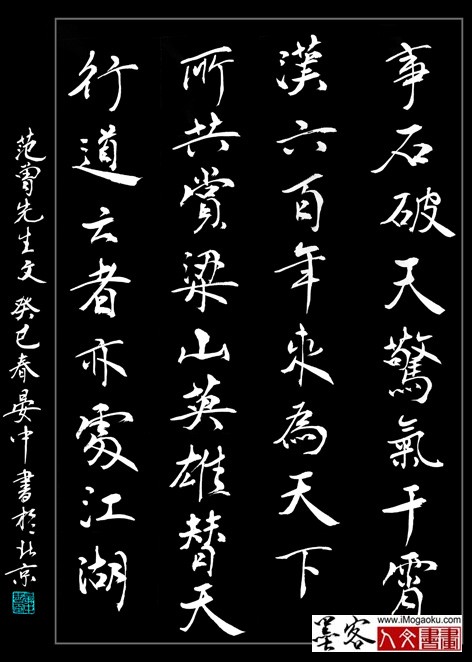 事石破天驚氣干霄
漢六百年來為天下
所共賞梁山英雄替天
行道云者亦處江湖
范曾先生文癸巳春晏中書於北京
墨客
www.iMogaoku.com
人文書畫